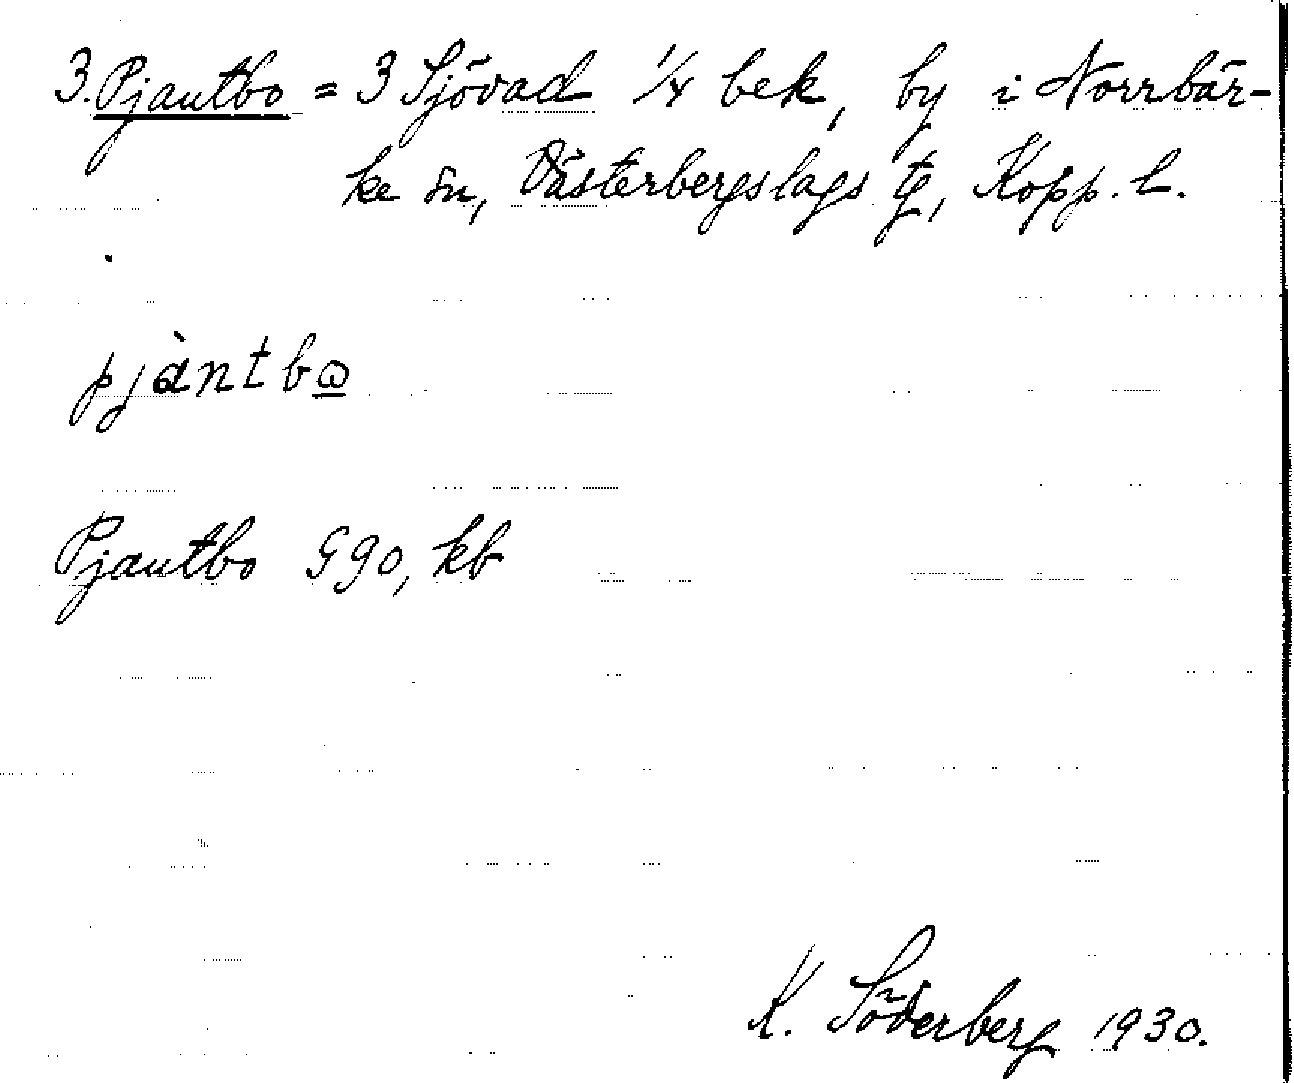 3. Pjantbo = 3 Sjövad 1/4 bek, by i Norrbär-
ke sn, Västerbergslags tg, Kopp. l.
pjàntbω
Pjantbo G90, kb
K. Söderberg 1930.